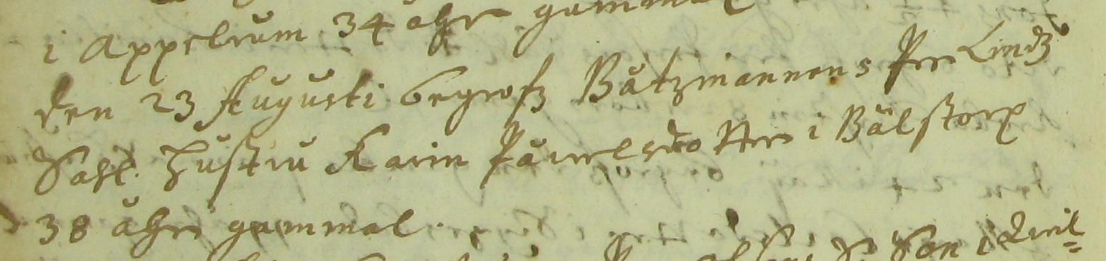 i Appelrum 34 åhr gammal
den 23 Augusti begrofz Båtzmannens Per Lindz
Sahl. Hustru Karin Påvelsdotter i Bälstorp
38 åhr gammal
Son i